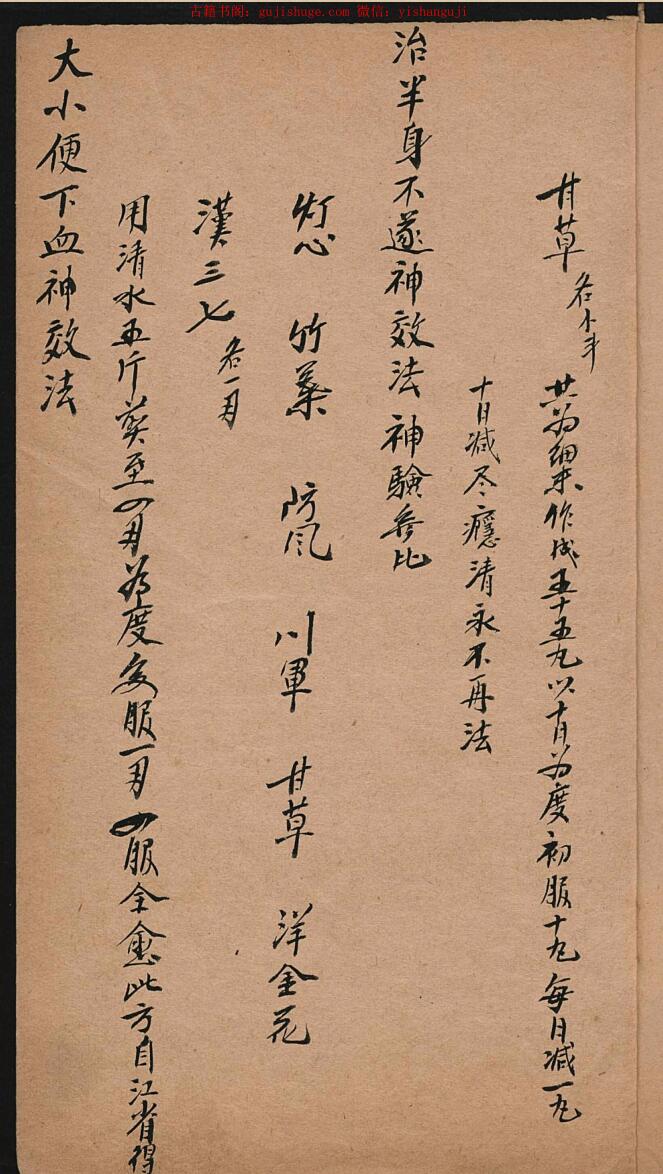 古籍书阁：gujishuge.com 微信：yishanguji
甘草 各小半
共为细末作成五十五丸以十日为度初服十丸每日减一丸
十日减尽瘾清永不再法
治半身不遂神效法 神驗無比
灯心 竹葉 防风 川軍 甘草 洋金花
漢三七 各一两
用清水五斤煎至四两为度每服一两四服全愈此方自江省得
大小便下血神效法